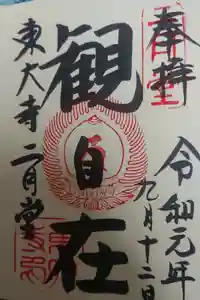 奉拝
令和元年
九月十二日
観自在
東大寺二月堂